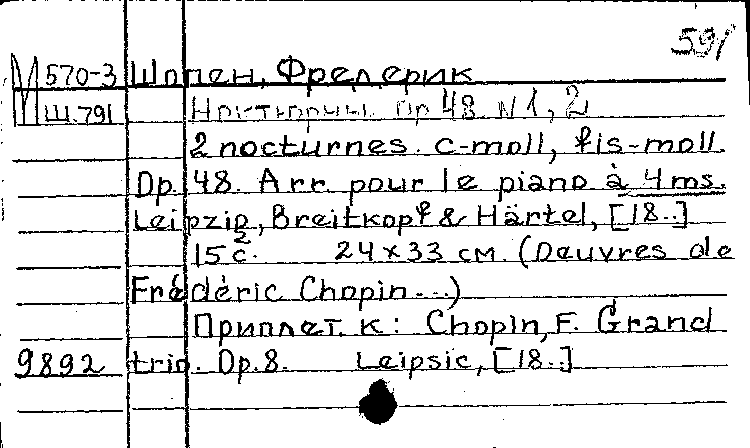 591
М 570-3 Шопен, Фредерик
Ш.791 Ноктюрны. Op 48 N 1, 2
2 nocturnes. C-moll, fis-moll.
Op. 48. Arr. pour le piano à 4 ms.
Leipzig, Breitkopf & Härtel, [18..]
15 2 с. 24×33 см. (Oeuvres de
Frédéric Chopin...)
Приплет. к: Chopin, F. Grand
9892 trio. Op. 8. Leipsic, [18..]